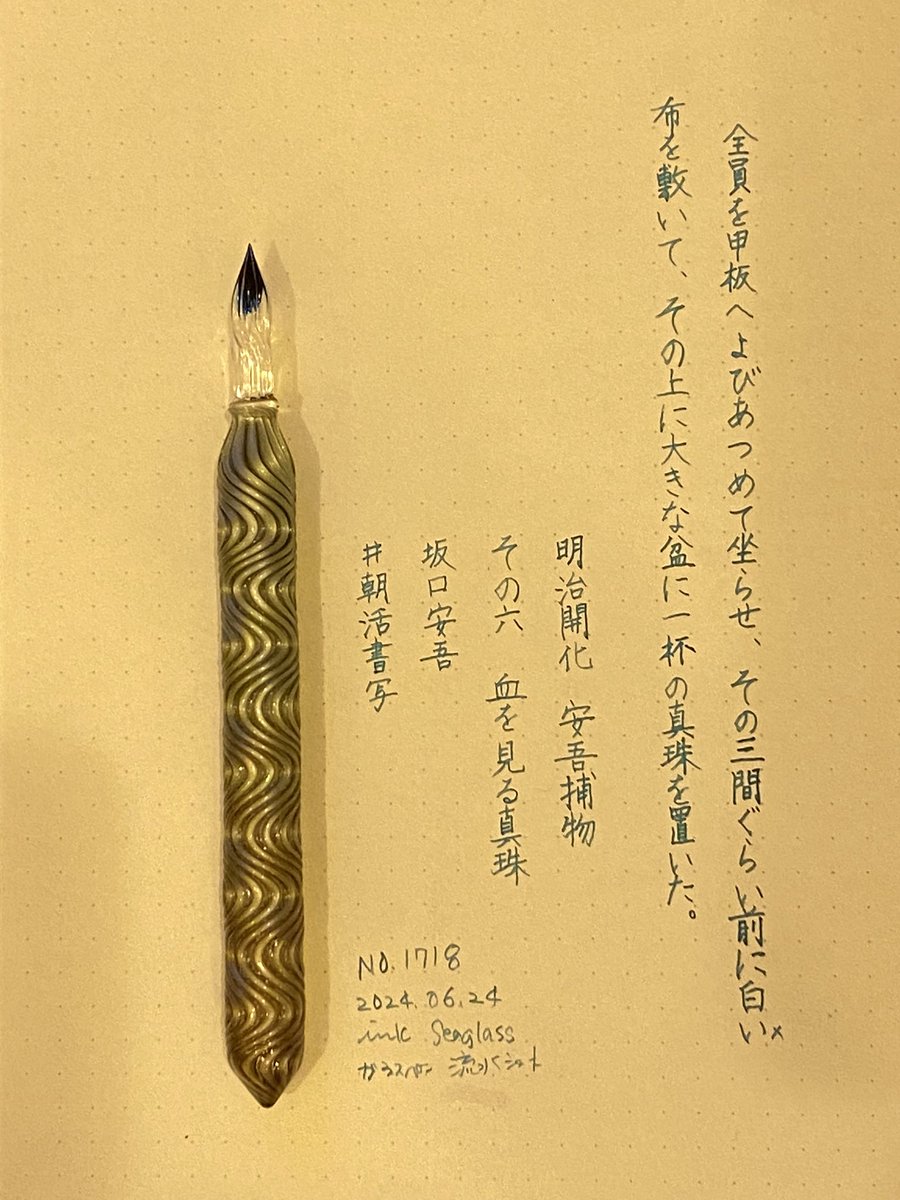 全員を甲板へよびあつめて坐らせ、その三間ぐらい前に白い
布を敷いて、その上に大きな盆に一杯の真珠を置いた。
明治開化 安吾捕物
その六 血を見る真珠
坂口安吾
#朝活書写
NO.1718
2024.06.24
ink Seaglass
ガラスペン 流水